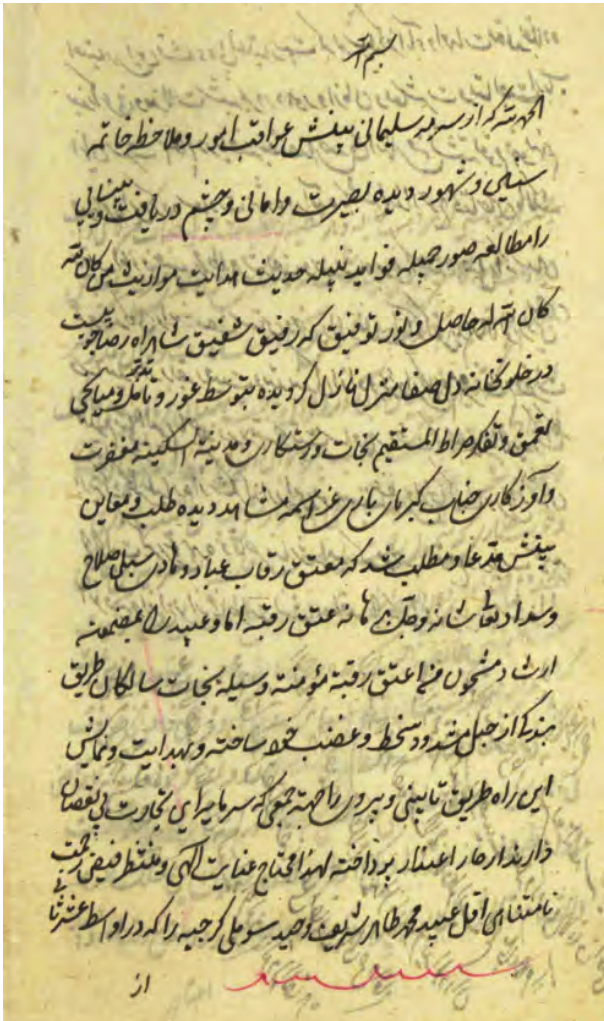 بسم الله
الحمد لله که از سرمه سلیمانی بینش عواقب امور و ملاحظه خاتمه
سنین و شهور دیده بصیرت و امانی و چشم دریافت و بینایی
را مطالعه صور جمیله فواید نبیله حدیث هدایت موازیث من کان لله
کان الله له حاصل و نور توفیق که رفیق شفیق شاهراه رضاجوییست
در خلوتخانه دل صفا منزل نازل گردیده بتوسط غور و تامل و تدبر و میانجی
تعمق و تفکر صراط المستقیم نجات و رستگاری و مدینة السکینه مغفرت
و آمرزگاری جناب کبریای باری عز اسمه مشاهد دیده طلب و معاین
بینش مدعا و مطلب شد که معتق رقاب عباد و هادی سبیل صلاح
و سداد تعالی شانه و جل برهانه عتق رقبه اما و عبید را
ارشاد مشحون اعتق رقبة مؤمنة وسیله نجات سالکان طریق
بندگی از حبل مشدود سخط و غضب خود ساخته و بهدایت و نمایش
این راه طریق تابینی و پیروی را جهة جمعی که سرمایه این تجارت بی نقصان
دارند ار پرداخته لهذا محتاج عنایت الهی و منتظر فیض رحمت
نامتناهی اقل عبید محمد طاهر شریف وحید سوملی گرجیه را که در اواسط عشر ثانی
از